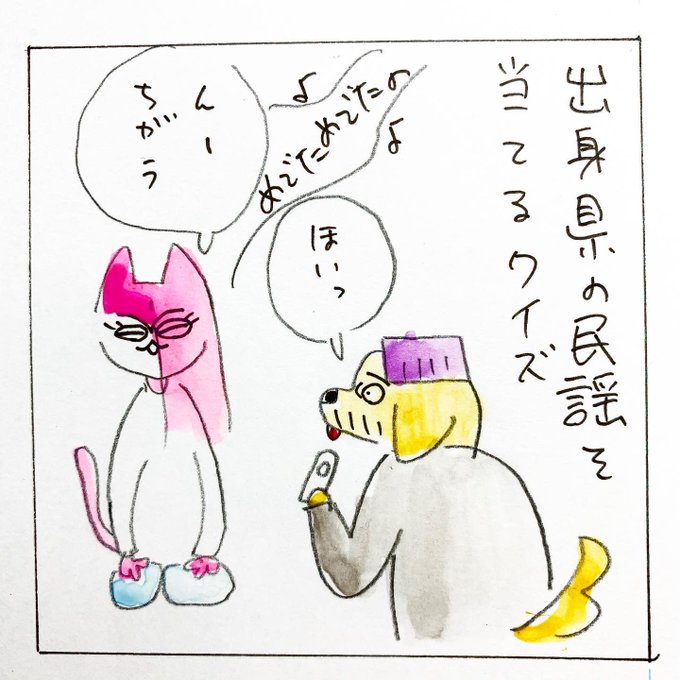 出身県の民謡を
当てるクイズ
♪
めでためでたの
♪
ほいっ
んー
ちがう